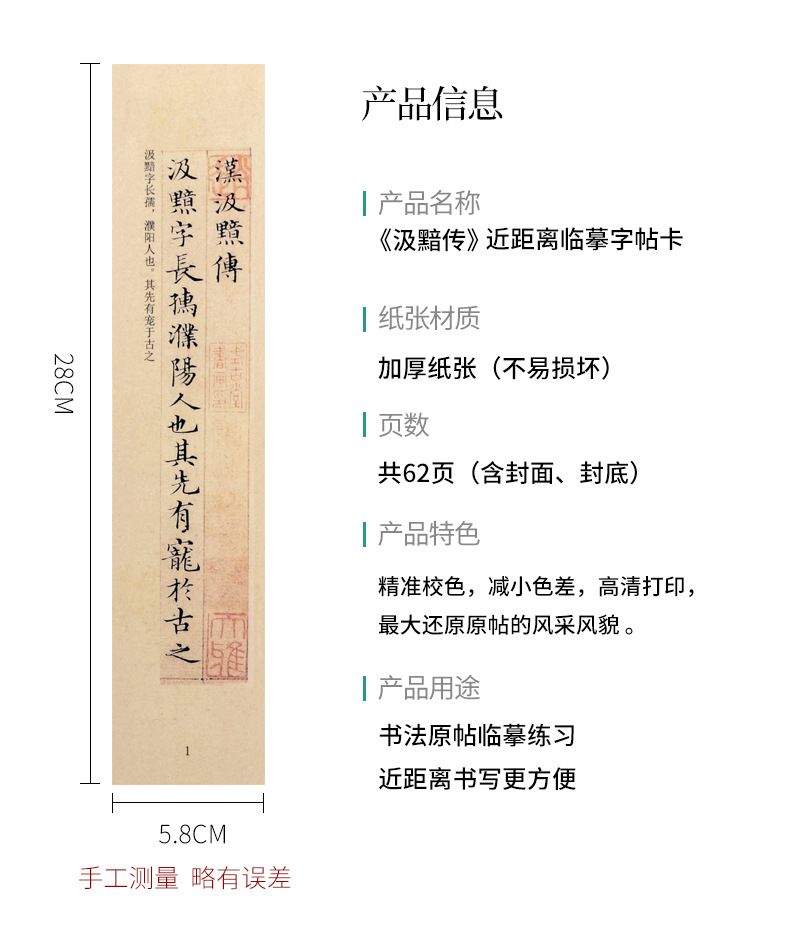 产品信息
产品名称
《汲黯传》近距离临摹字帖卡
纸张材质
加厚纸张（不易损坏）
页数
共62页（含封面、封底）
产品特色
精准校色，减小色差，高清打印，
最大还原原帖的风采风貌。
产品用途
书法原帖临摹练习
近距离书写更方便
漢汲黯傳
汲黯字長孺濮陽人也其先有寵於古之
汲黯字长孺，濮阳人也。其先有宠于古之
1
28CM
5.8CM
手工测量 略有误差